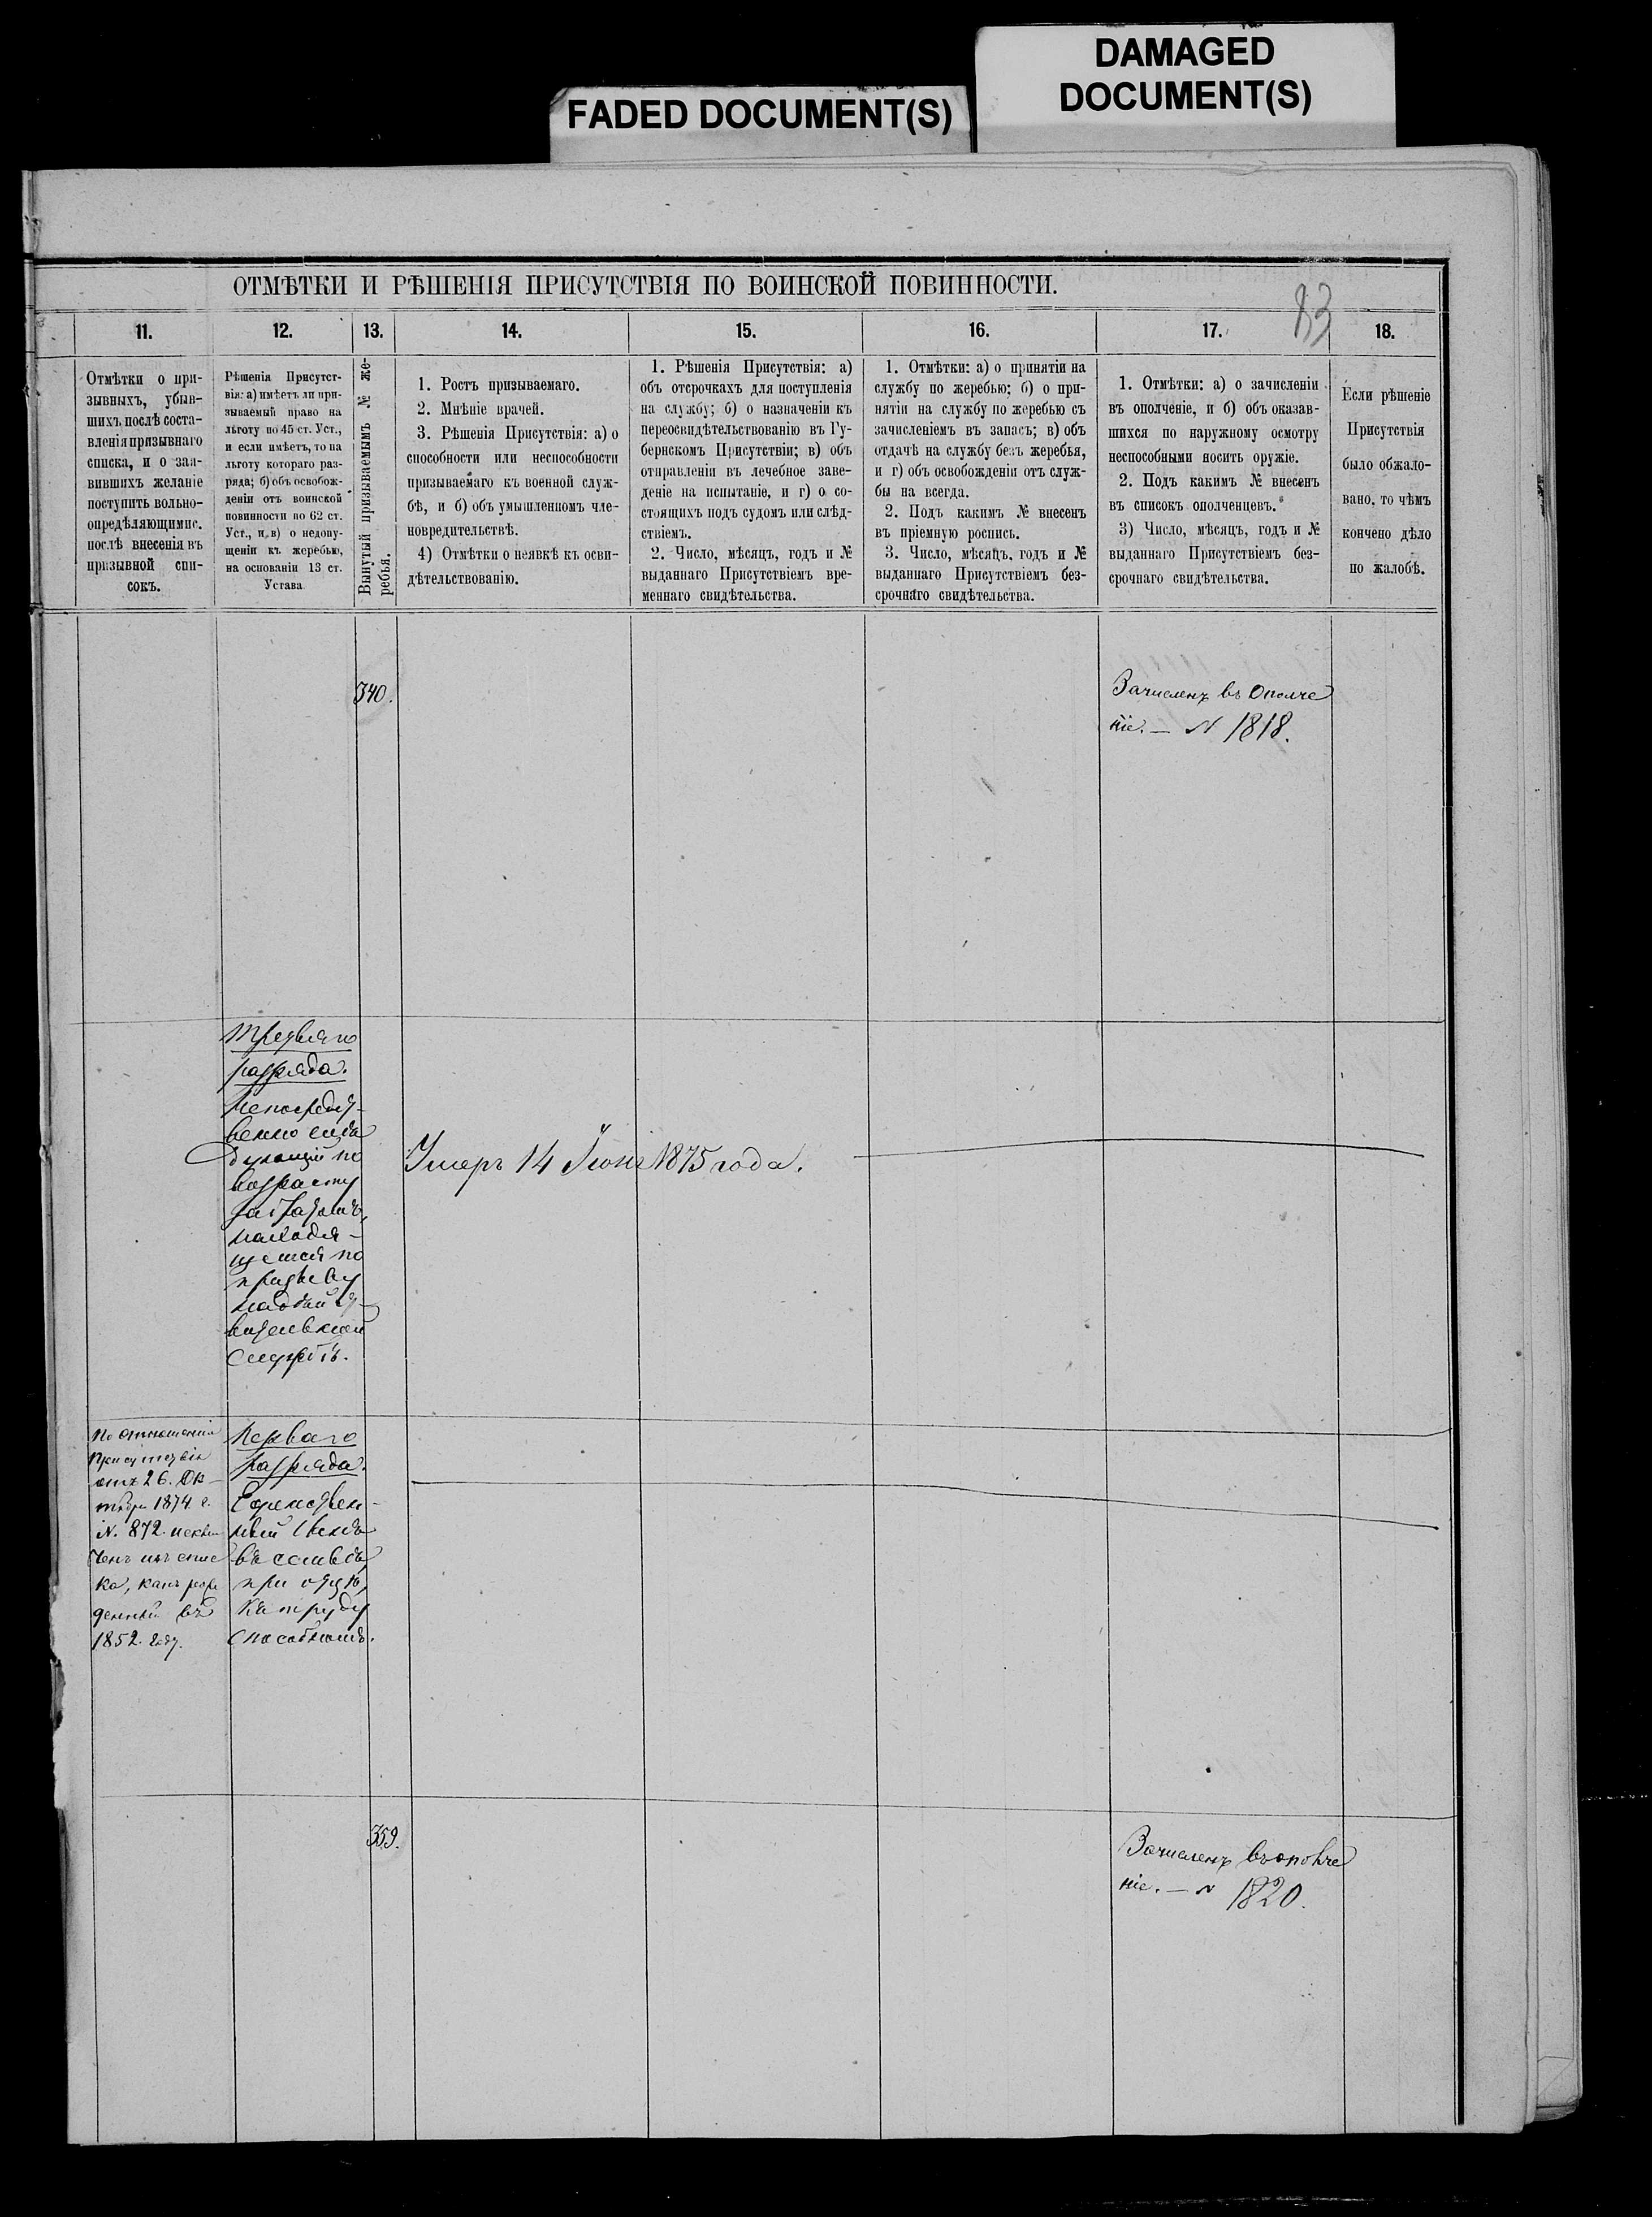 FADED DOCUMENT(S)
DAMAGED
DOCUMENT(S)
ОТМѢТКИ И РѢШЕНІЯ ПРИСУТСТВІЯ ПО ВОИНСКОЙ ПОВИННОСТИ.
83
11.
Отмѣтки о при-
зывныхъ, убыв-
шихъ послѣ соста-
вленія призывнаго
списка, и о зая-
вившихъ желаніе
поступить вольно-
опредѣляющимис.
послѣ внесенія въ
призывной спи-
сокъ.
12.
Рѣшенія Присутст-
вія: а) имѣетъ ли при-
зываемый право на
льготу по 45 ст. Уст.,
и если имѣетъ, то на
льготу котораго раз-
ряда; б) объ освобож-
деніи отъ воинской
повинности по 62 ст.
Уст., и в) о недопу-
щеніи къ жеребью,
на основаніи 13 ст.
Устава
13.
Вынутый призываемымъ № же-
ребья.
14.
1. Ростъ призываемаго.
2. Мнѣніе врачей.
3. Рѣшенія Присутствія: а) о
способности или неспособности
призываемаго къ военной служ-
бѣ, и б) объ умышленномъ чле-
новредительствѣ.
4) Отмѣтки о неявкѣ къ осви-
дѣтельствованію.
15.
1. Рѣшенія Присутствія: а)
объ отсрочкахъ для поступленія
на службу; б) о назначеніи къ
переосвидѣтельствованію въ Гу-
бернскомъ Присутствіи; в) объ
отправленіи въ лечебное заве-
деніе на испытаніе, и г) о со-
стоящихъ подъ судомъ или слѣд-
ствіемъ.
2. Число, мѣсяцъ, годъ и №
выданнаго Присутствіемъ вре-
меннаго свидѣтельства.
16.
1. Отмѣтки: а) о принятіи на
службу по жеребью; б) о при-
нятіи на службу по жеребью съ
зачисленіемъ въ запасъ; в) объ
отдачѣ на службу безъ жеребья,
и г) объ освобожденіи отъ служ-
бы на всегда.
2. Подъ какимъ № внесенъ
въ пріемную роспись.
3. Число, мѣсяцъ, годъ и №
выданнаго Присутствіемъ без-
срочнаго свидѣтельства.
17.
1. Отмѣтки: а) о зачисленіи
въ ополченіе, и б) объ оказав-
шихся по наружному осмотру
неспособными носить оружіе.
2. Подъ какимъ № внесенъ
въ списокъ ополченцевъ.
3) Число, мѣсяцъ, годъ и №
выданнаго Присутствіемъ без-
срочнаго свидѣтельства.
18.
Если рѣшеніе
Присутствія
было обжало-
вано, то чѣмъ
кончено дѣло
по жалобѣ.
340.
Зачисленъ въ Ополче
ніе. — N 1818.
Третьяго
разряда.
Непосредст-
венно слѣ
дующій по
возрасту
за братомъ,
находя-
щемся по
призыву
на дѣйст-
вительной
службѣ.
Умеръ 14 Іюня 1875 года.
По отношенію
Присутствія
отъ 26. Ок-
тября 1874 г.
N. 872. исклю
ченъ изъ спис
ка, какъ рож
денный въ
1852. году.
Перваго
разряда.
Единствен-
ный сынъ
въ семьѣ,
при отцѣ,
къ труду
способномъ.
359.
Зачисленъ въ ополче
ніе. — N 1820.